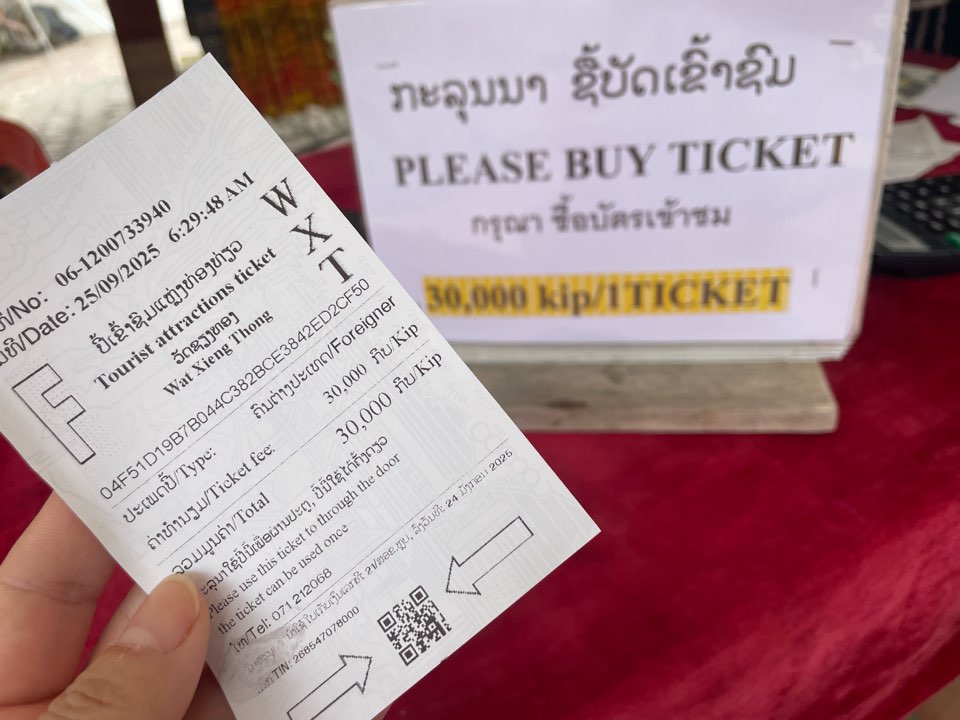 ກະລຸນນາ ຊື້ບັດເຂົ້າຊົມ
PLEASE BUY TICKET
กรุณา ซื้อบัตรเข้าชม
30,000 kip/1TICKET
/No: 06-1200733940
/Date: 25/09/2025 6:29:48 AM
W
X
T
F
ປີ້ເຂົ້າຊົມແຫຼ່ງທ່ອງທ່ຽວ
Tourist attractions ticket
ວັດຊຽງທອງ
Wat Xieng Thong
04F51D19B7B044C382BCE3842ED2CF50
ປະເພດປີ້/Type: ຄົນຕ່າງປະເທດ/Foreigner
ຄ່າທຳນຽມ/Ticket fee: 30,000 ກີບ/Kip
ລວມມູນຄ່າ/Total 30,000 ກີບ/Kip
Please use this ticket to through the door
the ticket can be used once
ໂທ/Tel: 071 212068
24 ມັງກອນ 2025
TIN: 268547078000